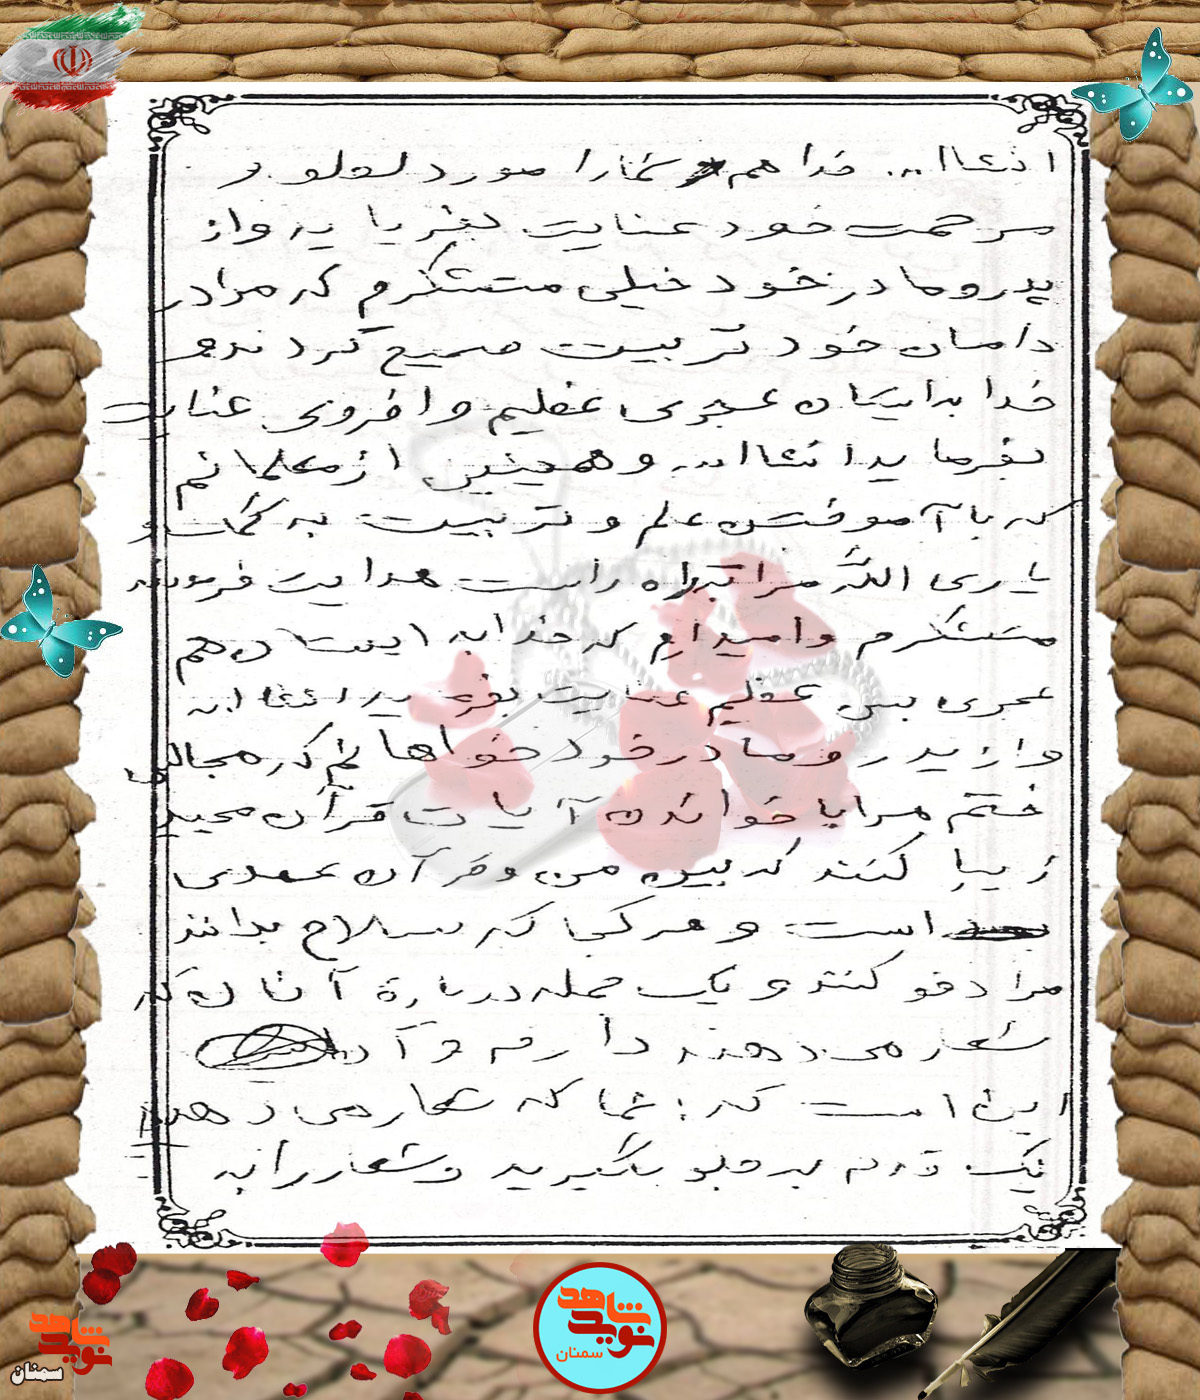 انشااله. خدا هم شما را مورد لولو و
مرحمت خود عنایت بفرماید و از
پدر و مادر خود خیلی متشکرم که مرا در
دامان خود تربیت صحیح کردند و
خدا به ایشان عجری عظیم و افروی عنایت
بفرماید انشااله و همچنین از معلمانم
که با آموختن علم و تربیت به کمک و
یاری الله مرا به راه راست هدایت فرمودند
متشکرم و امیدارم که خدا به ایشان هم
عجری بس عظیم عنایت بفرماید انشااله
و از پدر و مادر خود خواهانم که مجالس
ختم مرا با خواندن آیات قرآن مجید
زیبا کنند که بین من و قرآن عهدی
است و هر کجا که سلاح بدانند
مرا دفن کنند و یک جمله درباره آنان که
شعار می دهند دارم و آن
این است که: شما که شعار می دهید
یک قدم به جلو بگیرید و شعار را به
شاهد
نوید
سمنان
شاهد
نوید
سمنان